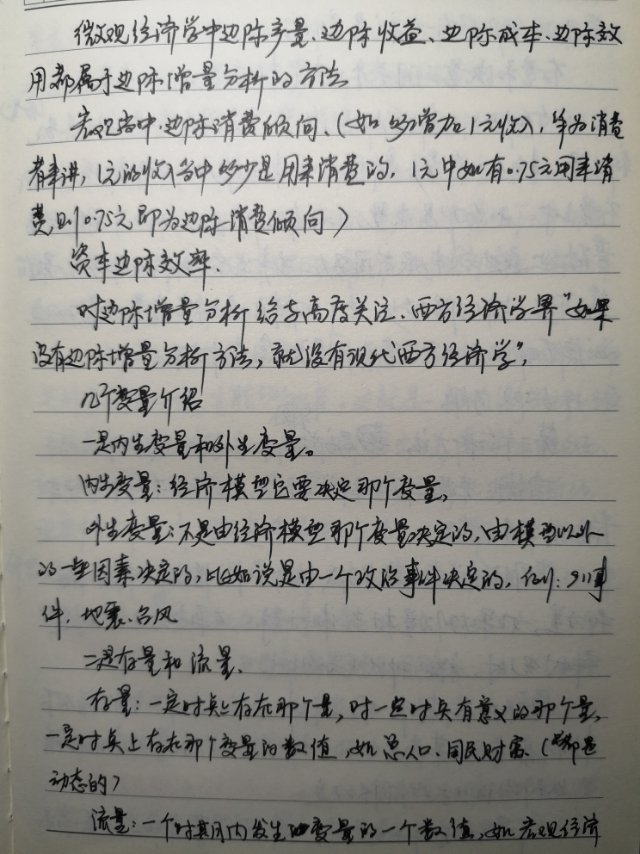 微观经济学中边际产量、边际收益、边际成本、边际效
用都属于边际增量分析的方法
宏观当中.边际消费倾向、(如多增加1元收入,作为消费
者来讲,1元的收入当中多少是用来消费的,1元中如有0.75元用来消
费,则0.75元即为边际消费倾向)
资本边际效率.
对边际增量分析给与高度关注、西方经济学界"如果
没有边际增量分析方法,就没有现代西方经济学",
几个变量介绍
一是内生变量和外生变量。
内生变量:经济模型它要决定那个变量,
外生变量:不是由经济模型那个变量决定的,由模型以外
的一些因素决定的,比如说是由一个政治事件决定的,例:911事
件.地震、台风
二是存量和流量、
存量:一定时点上存在那个量,对一些时点有意义的那个量,
一定时点上存在那个变量的数值,如总人口、国民财富、(都是
动态的)
流量:一个时期内发生变量的一个数值,如宏观经济